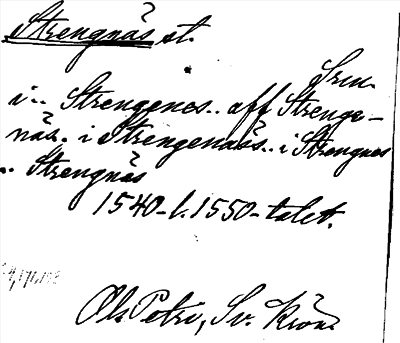 Strengnäs st.
Srm.
i.. Strengenes.. aff Strenge-
näs.. i Strengenääs.. i Strengnes
.. Strengnäs
1540- l. 1550-talet.
Ol. Petri, Sv. Krön.